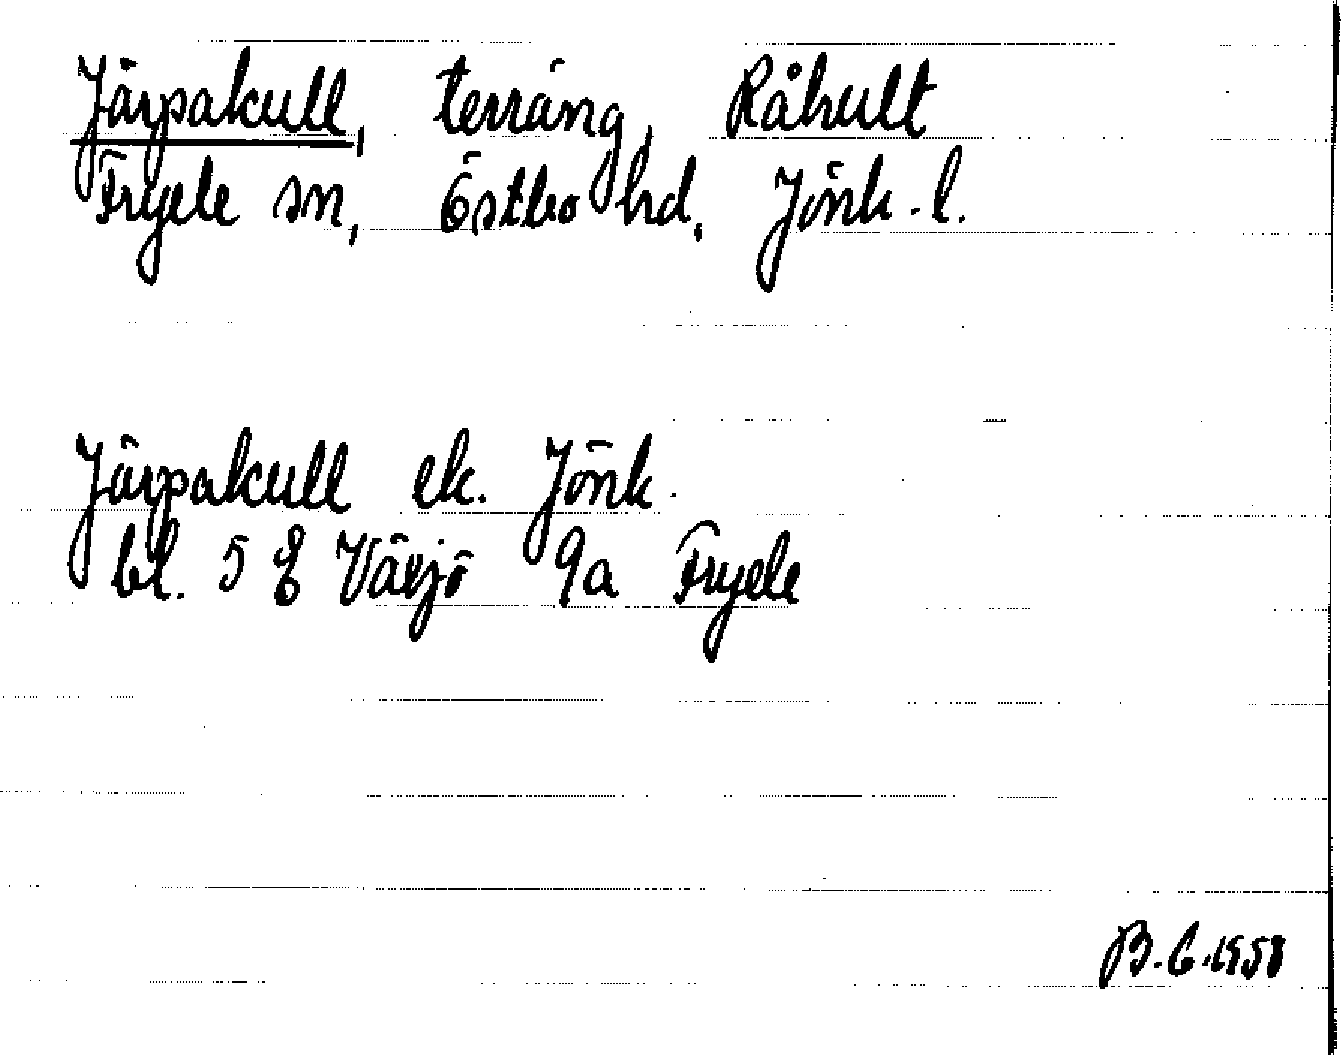 Järpakull, terräng, Råhult
Fryele sn, Östbo hd, Jönk. l.
Järpakull ek. Jönk.
bl. 5 E Växjö 9a Fryele
B. C. 1958